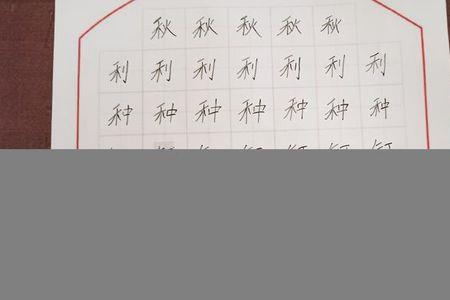 秋秋秋秋秋
利利利利利利利
种种种种种种种